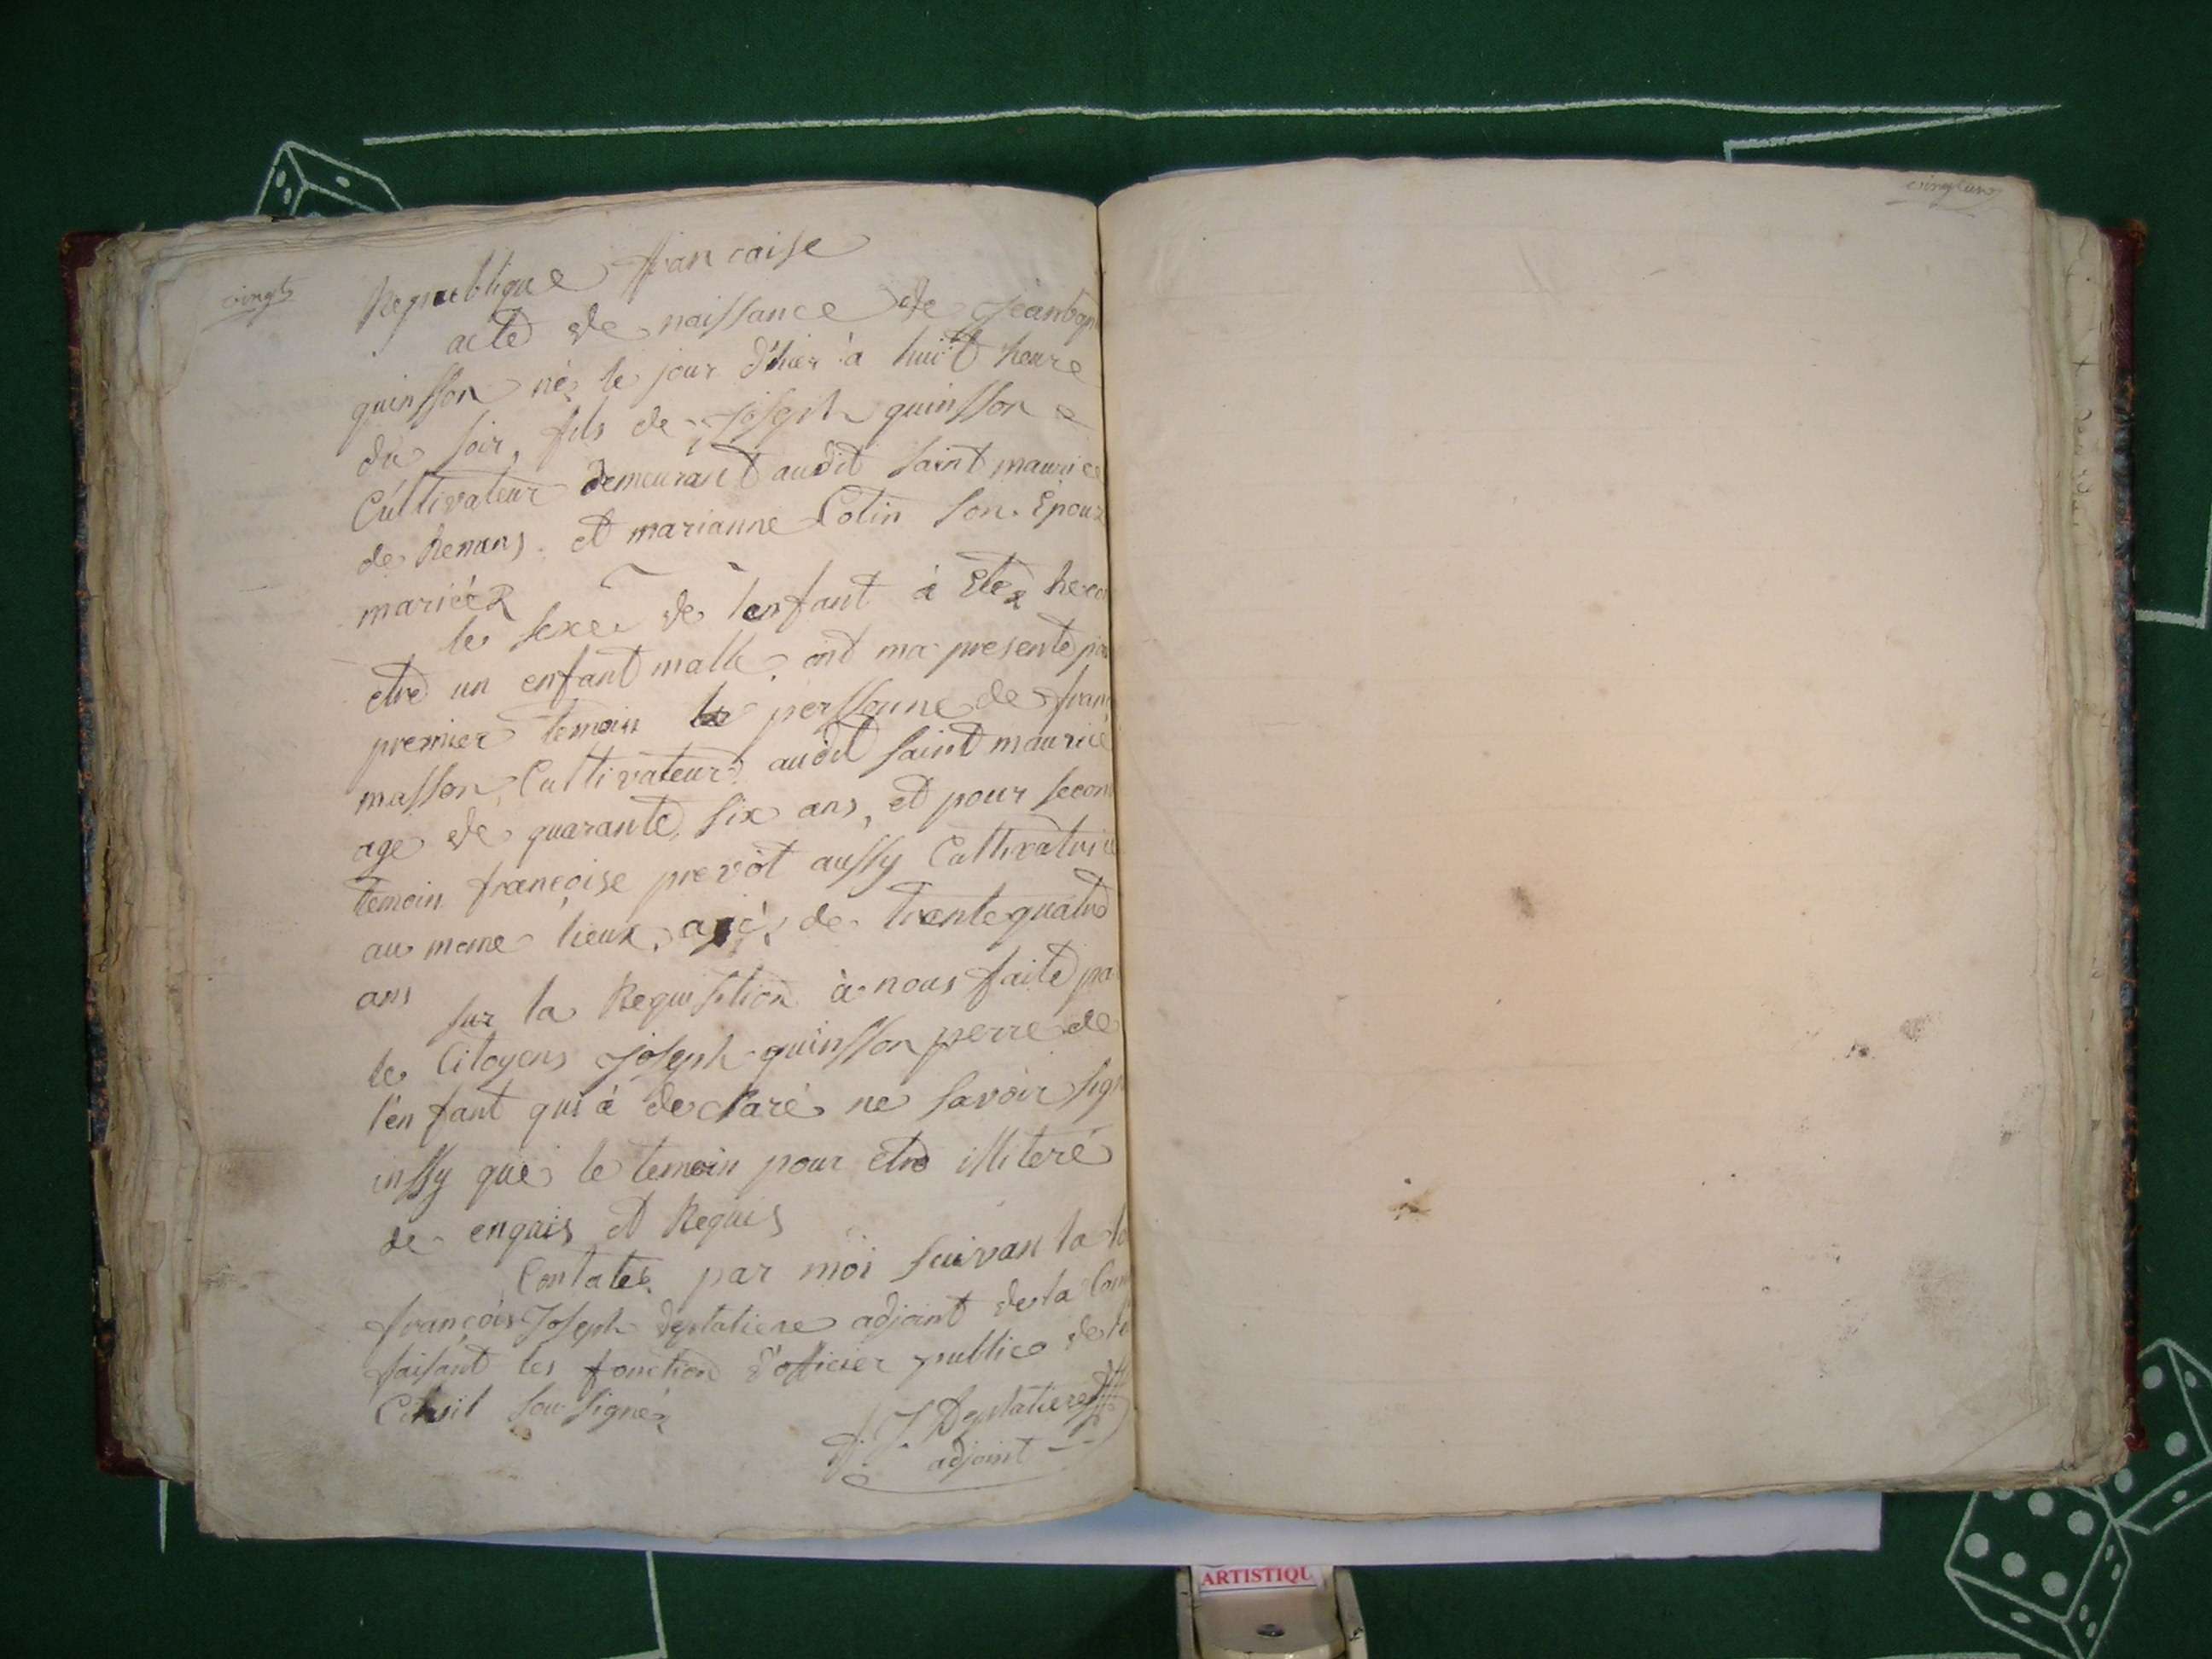 vingt
Republique francaise
acte de naissance de Jeanbap
quinsson né le jour d'hier à huit heure
du soir, fils de Joseph quinsson
Cultivateur demeurant audit saint maurice
de Remans. et marianne Colin son Epouz
mariéz
le sexe de lenfant à Etez reco
etre un enfant malle, ont ma presenté pou
premier temoin la perssonne de franç
masson, Cultivateur audit saint maurice
age de quarante six ans, et pour secon
temoin françoise prevot aussy Cultivatric
au meme lieux, agé de trente quatre
ans
sur la Requisition à nous faite pa
le Citoyens Joseph quinsson perre de
l'enfant qui à declaré ne savoir sign
inssy que le temoin pour etre illiteré
de enquis et Requis
Contatéz par moi suivan la lo
françois Joseph adjoint de la Com
faisant les fonction d'officier public de l'é
Civil sousignéz
f. J.
adjoint
vingt un
ARTISTIQU